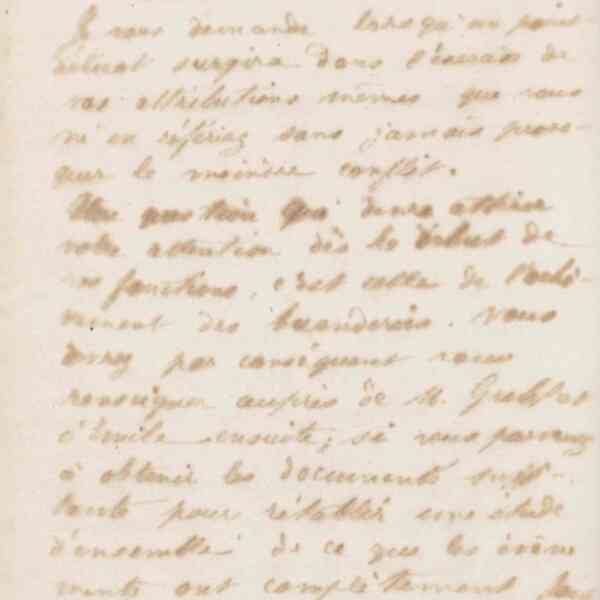 Je vous demande lorsqu'un point
surgira dans l'exercice de
vos attributions mêmes que vous
m'en référiez sans jamais provo-
quer le moindre conflit.
Une question qui devra attirer
votre attention dès le début de
vos fonctions, c'est celle de l'enlè-
vement des buanderies. Vous
devrez par conséquent vous
renseigner auprès de M.
ensuite, si vous parvenez
à obtenir les documents suffi-
sants pour rétablir une étude
d'ensemble de ce que les événe
ments ont complètement